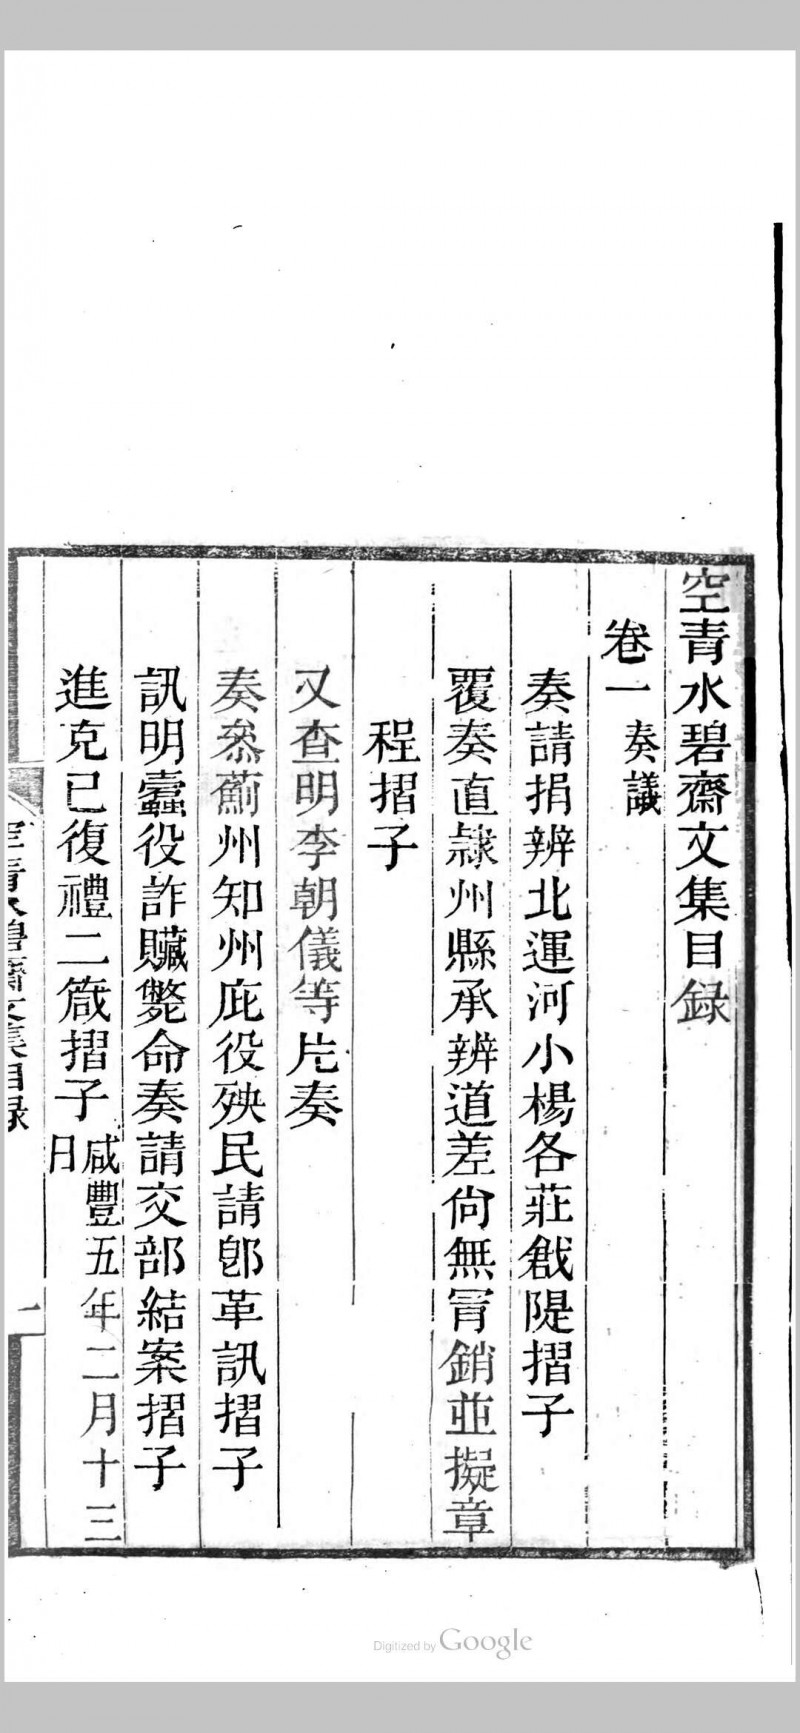 空青水碧齋文集目録
卷一 奏議
奏請捐辨北運河小楊各莊戧隄摺子
覆奏直隸州縣承辨道差尙無冒銷並擬章
程摺子
又查明李朝儀等片奏
奏叅薊州知州庇役殃民請卽革訊摺子
訊明蠧役詐贓斃命奏請交部結案摺子
進克己復禮二箴摺子 咸豐五年二月十三日
空青水碧齋文集目録
一
Digitized by Google